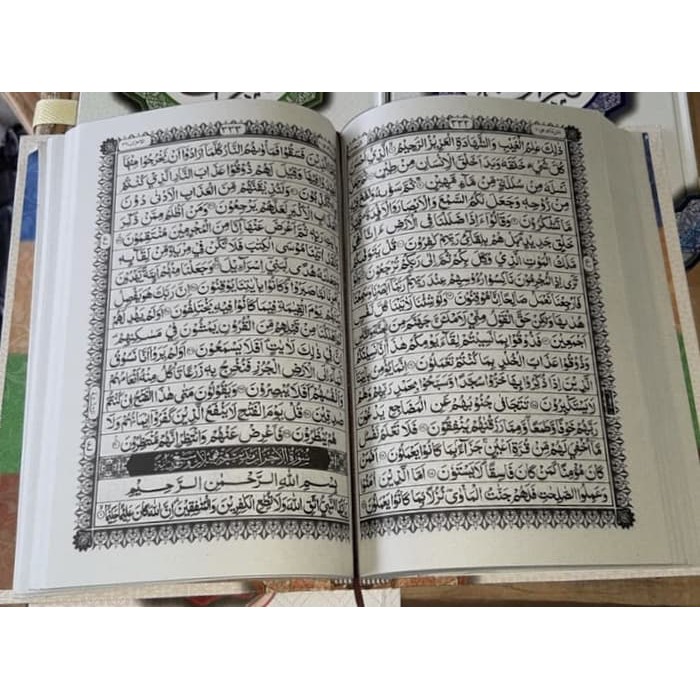 ذٰلِكَ عٰلِمُ الْغَيْبِ وَالشَّهَادَةِ الْعَزِيْزُ الرَّحِيْمُ الَّذِيْٓ
كُلَّ شَيْءٍ خَلَقَهٗ وَبَدَاَ خَلْقَ الْاِنْسَانِ مِنْ طِيْنٍ
نَسْلَهٗ مِنْ سُلٰلَةٍ مِّنْ مَّآءٍ مَّهِيْنٍ ثُمَّ سَوّٰىهُ
مِنْ رُّوْحِهٖ وَجَعَلَ لَكُمُ السَّمْعَ وَالْاَبْصَارَ وَالْاَفْـِٕدَةَ
مَّا تَشْكُرُوْنَ وَقَالُوْٓا ءَاِذَا ضَلَلْنَا فِى الْاَرْضِ ءَاِنَّا لَفِيْ
خَلْقٍ جَدِيْدٍ بَلْ هُمْ بِلِقَآئِ رَبِّهِمْ كٰفِرُوْنَ قُلْ يَتَوَفّٰىكُمْ
مَّلَكُ الْمَوْتِ الَّذِيْ وُكِّلَ بِكُمْ ثُمَّ اِلٰى رَبِّكُمْ تُرْجَعُوْنَ
تَرٰٓى اِذِ الْمُجْرِمُوْنَ نَاكِسُوْا رُءُوْسِهِمْ عِنْدَ رَبِّهِمْ رَبَّنَآ اَبْصَرْنَا
فَارْجِعْنَا نَعْمَلْ صَالِحًا اِنَّا مُوْقِنُوْنَ وَلَوْ شِئْنَا لَاٰتَيْنَا كُلَّ نَفْسٍ
هُدٰىهَا وَلٰكِنْ حَقَّ الْقَوْلُ مِنِّيْ لَاَمْلَـَٔنَّ جَهَنَّمَ مِنَ
اَجْمَعِيْنَ فَذُوْقُوْا بِمَا نَسِيْتُمْ لِقَآءَ يَوْمِكُمْ هٰذَا اِنَّا نَسِيْنٰكُمْ
وَذُوْقُوْا عَذَابَ الْخُلْدِ بِمَا كُنْتُمْ تَعْمَلُوْنَ اِنَّمَا يُؤْمِنُ
الَّذِيْنَ اِذَا ذُكِّرُوْا بِهَا خَرُّوْا سُجَّدًا وَّسَبَّحُوْا بِحَمْدِ رَبِّهِمْ وَهُمْ
لَا يَسْتَكْبِرُوْنَ تَتَجَافٰى جُنُوْبُهُمْ عَنِ الْمَضَاجِعِ يَدْعُوْنَ
رَبَّهُمْ خَوْفًا وَّطَمَعًا وَّمِمَّا رَزَقْنٰهُمْ يُنْفِقُوْنَ فَلَا تَعْلَمُ نَفْسٌ
مَّآ اُخْفِيَ لَهُمْ مِّنْ قُرَّةِ اَعْيُنٍ جَزَآءً بِمَا كَانُوْا يَعْمَلُوْنَ
كَانَ مُؤْمِنًا كَمَنْ كَانَ فَاسِقًا لَا يَسْتَوٗنَ اَمَّا الَّذِيْنَ اٰمَنُوْا
وَعَمِلُوا الصّٰلِحٰتِ فَلَهُمْ جَنّٰتُ الْمَأْوٰى نُزُلًا بِمَا كَانُوْا يَعْمَلُوْنَ
الَّذِيْنَ فَسَقُوْا فَمَأْوٰىهُمُ النَّارُ كُلَّمَآ اَرَادُوْٓا اَنْ يَّخْرُجُوْا مِنْهَآ
فِيْهَا وَقِيْلَ لَهُمْ ذُوْقُوْا عَذَابَ النَّارِ الَّذِيْ كُنْتُمْ
وَلَنُذِيْقَنَّهُمْ مِّنَ الْعَذَابِ الْاَدْنٰى دُوْنَ
الْعَذَابِ الْاَكْبَرِ لَعَلَّهُمْ يَرْجِعُوْنَ وَمَنْ اَظْلَمُ مِمَّنْ ذُكِّرَ
رَبِّهٖ ثُمَّ اَعْرَضَ عَنْهَا اِنَّا مِنَ الْمُجْرِمِيْنَ مُنْتَقِمُوْنَ
اٰتَيْنَا مُوْسَى الْكِتٰبَ فَلَا تَكُنْ فِيْ مِرْيَةٍ مِّنْ لِّقَآئِهٖ
هُدًى لِّبَنِيْٓ اِسْرَآءِيْلَ وَجَعَلْنَا مِنْهُمْ اَئِمَّةً يَّهْدُوْنَ
لَمَّا صَبَرُوْا وَكَانُوْا بِاٰيٰتِنَا يُوْقِنُوْنَ اِنَّ رَبَّكَ هُوَ يَفْصِلُ
يَوْمَ الْقِيٰمَةِ فِيْمَا كَانُوْا فِيْهِ يَخْتَلِفُوْنَ اَوَلَمْ يَهْدِ لَهُمْ
اَهْلَكْنَا مِنْ قَبْلِهِمْ مِّنَ الْقُرُوْنِ يَمْشُوْنَ فِيْ مَسٰكِنِهِمْ
فِيْ ذٰلِكَ لَاٰيٰتٍ اَفَلَا يَسْمَعُوْنَ اَوَلَمْ يَرَوْا اَنَّا نَسُوْقُ
اِلَى الْاَرْضِ الْجُرُزِ فَنُخْرِجُ بِهٖ زَرْعًا تَأْكُلُ مِنْهُ اَنْعَامُهُمْ
وَاَنْفُسُهُمْ اَفَلَا يُبْصِرُوْنَ وَيَقُوْلُوْنَ مَتٰى هٰذَا الْفَتْحُ اِنْ كُنْتُمْ
صٰدِقِيْنَ قُلْ يَوْمَ الْفَتْحِ لَا يَنْفَعُ الَّذِيْنَ كَفَرُوْٓا اِيْمَانُهُمْ وَلَا
هُمْ يُنْظَرُوْنَ فَاَعْرِضْ عَنْهُمْ وَانْتَظِرْ اِنَّهُمْ مُّنْتَظِرُوْنَ
سُوْرَةُ الْاَحْزَابِ
بِسْمِ اللّٰهِ الرَّحْمٰنِ الرَّحِيْمِ
يٰٓاَيُّهَا النَّبِيُّ اتَّقِ اللّٰهَ وَلَا تُطِعِ الْكٰفِرِيْنَ وَالْمُنٰفِقِيْنَ اِنَّ اللّٰهَ كَانَ عَلِيْمًا